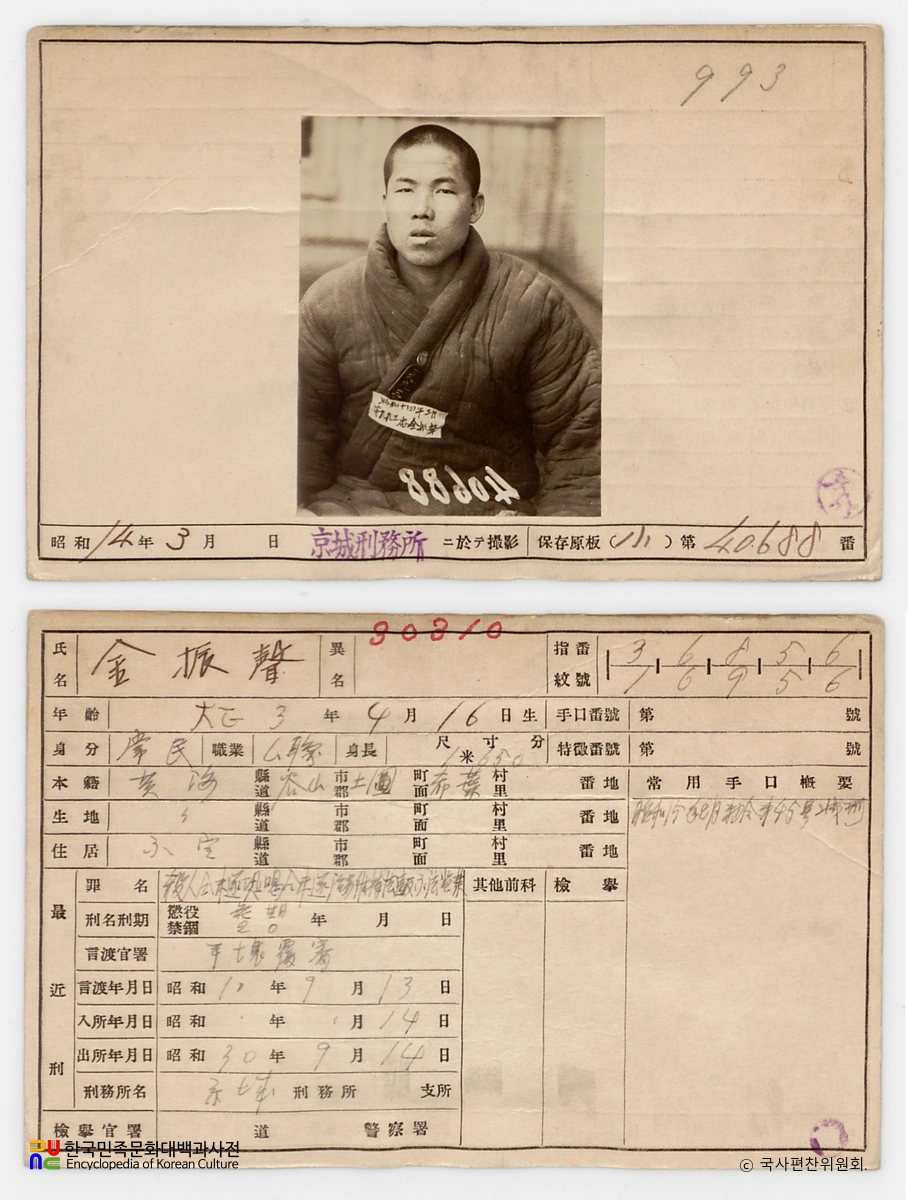 993
40688
昭和14年3月 日 京城刑務所 ニ於テ撮影 保存原板(小)第40688番
30310
氏名 金振聲 異名 指紋番號 3 6 8 5 6
1 6 9 5 6
年齡 大正3年4月16日生 手口番號 第 號
身分 常民 職業 身長 尺寸分 1米650 特徵番號 第 號
本籍 黃海 縣道 谷山 市郡 町面 村里 番地 常用手口概要
生地 縣道 市郡 町面 村里 番地
住居 不定 縣道 市郡 町面 村里 番地
最近刑 罪名 其他前科 檢擧
刑名刑期 懲役禁錮 無期 年 月 日
言渡官署 平壤覆審
言渡年月日 昭和11年9月13日
入所年月日 昭和 年 月14日
出所年月日 昭和30年9月14日
刑務所名 京城 刑務所 支所
檢擧官署 道 警察署
한국민족문화대백과사전
Encyclopedia of Korean Culture
© 국사편찬위원회.